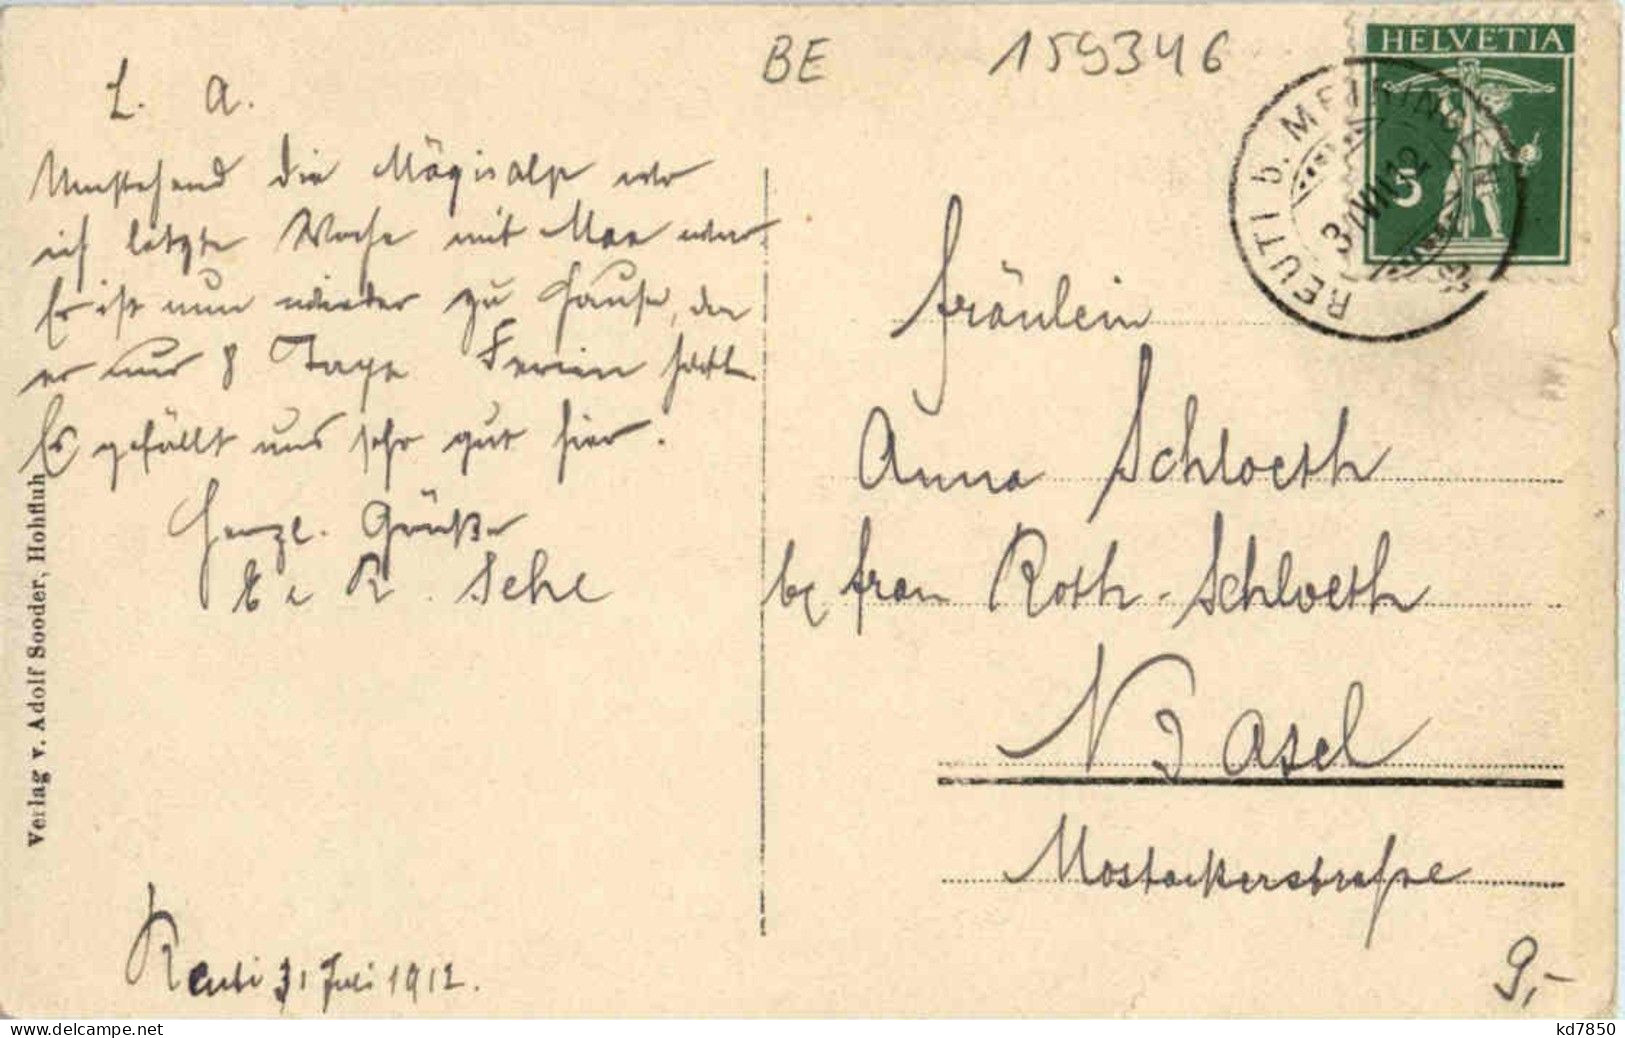 BE 159346
HELVETIA
5
REUTI b. MEIRINGEN
31.VII.12
L. A.
Umstehend die Mägisalp wo
ich letzte Woche mit Max war.
Er ist nun wieder zu Hause, da
er nur 8 Tage Ferien hatte.
Es gefällt uns sehr gut hier.
Herzl. Grüße
R.
Reuti 31 Juli 1912.
Verlag v. Adolf Sooder, Hohfluh
Fräulein
Anna Schloeth
bei Frau Roth-Schloeth
Basel
Mostackerstrasse
9,-
www.delcampe.net
kd7850